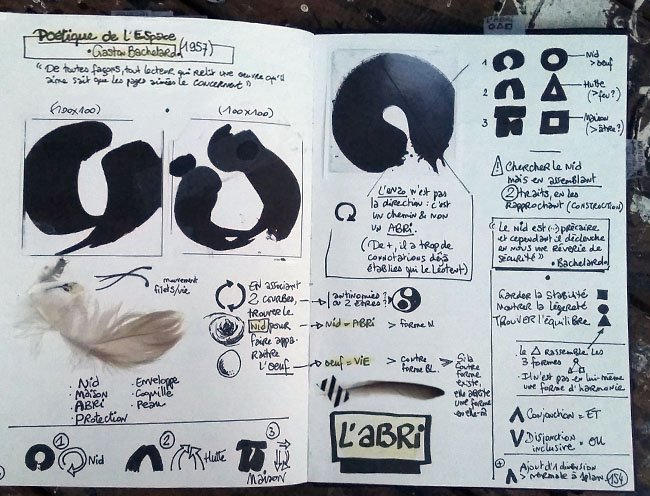 Poétique de l'Espace
• Gaston Bachelard (1957)
"De toutes façons, tout lecteur qui relit une oeuvre qu'il
aime sait que les pages aimées le concernent"
(100x100)
(100x100)
mouvement
filets/vie
. Nid
. Maison
. Abri
. Protection
. Enveloppe
. Coquille
. Peau
En associant
2 courbes,
trouver le
Nid pour
faire appa-
raître
l'oeuf
1
Nid
2
Hutte
3
Maison
L'enzo n'est pas
la direction: c'est
un chemin & non
un Abri.
(De +, il a trop de
connotations déjà
établies qui le lestent)
antinomies?
ou 2 êtres?
Nid = Abri > forme N
oeuf = Vie > contre
forme BL.
Si la
contre
forme
existe,
elle abrite
une forme
en elle-m
L'ABRI
1
Nid
> oeuf
2
Hutte
(> feu?)
3
Maison
(> être?)
! Chercher le Nid
mais en assemblant
2 traits, en les
rapprochant (construction)
"Le nid est (..) précaire
et cependant il déclenche
en nous une rêverie de
sécurité"
• Bachelard
Garder la Stabilité
Montrer la Légereté
Trouver l'Équilibre
• Le △ rassemble les
3 formes
• Il n'est pas en lui-même
une forme d'harmonie
Λ Conjonction = ET
V Disjonction = OU
inclusive
+ Ajout d'1 dimension
> normale à 1 plan
154